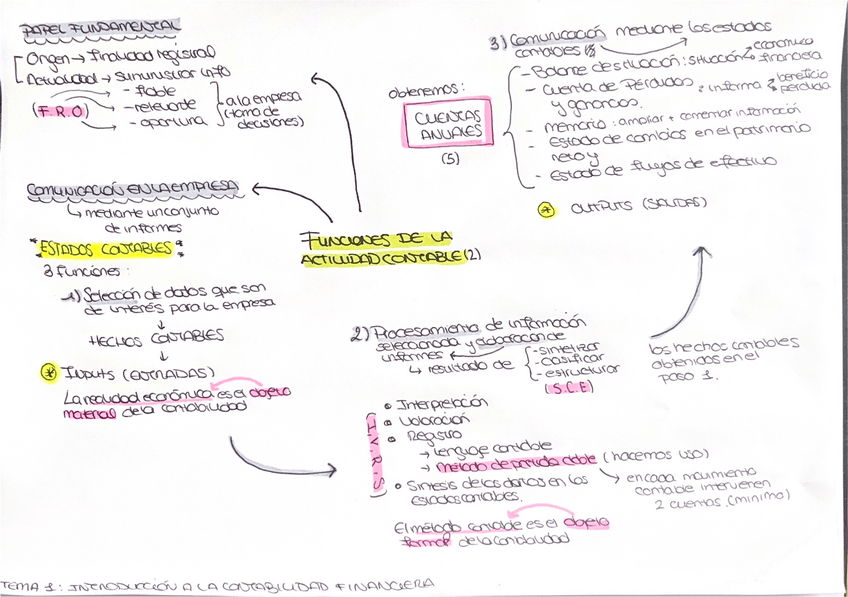 PAPEL FUNDAMENTAL
Origen → finalidad registral
Actualidad → suministrar info
- fiable
(F.R.O)
- relevante
- oportuna
a la empresa
(toma de
decisiones)
COMUNICACIÓN EN LA EMPRESA
↳ mediante un conjunto
de informes
* ESTADOS CONTABLES *
3 funciones:
1) Selección de datos que son
de interés para la empresa
↓
HECHOS CONTABLES
↓
* INPUTS (ENTRADAS)
La realidad económica es el objeto
material de la contabilidad
FUNCIONES DE LA
ACTIVIDAD CONTABLE (2)
2) Procesamiento de información
seleccionada y elaboración de
informes
↳ resultado de
- sintetizar
- clasificar
- estructurar
(S.C.E)
I.V.R.S
• Interpretación
• Valoración
• Registro
→ lenguaje contable
→ método de partida doble (hacemos uso)
↘ en cada movimiento
contable intervienen
2 cuentas. (mínimo)
• Síntesis de los datos en los
estados contables.
El método contable es el objeto
formal de la contabilidad
los hechos contables
obtenidos en el
PASO 1.
3) Comunicación mediante los estados
contables
obtenemos:
CUENTAS
ANUALES
(5)
- Balance de situación: situación económica
financiera
- Cuenta de Pérdidas
y ganancias.
: informa beneficio
pérdida
- memoria: ampliar + comentar información
- estado de cambios en el patrimonio
neto y
- estado de flujos de efectivo
* OUTPUTS (SALIDAS)
TEMA 1: INTRODUCCIÓN A LA CONTABILIDAD FINANCIERA